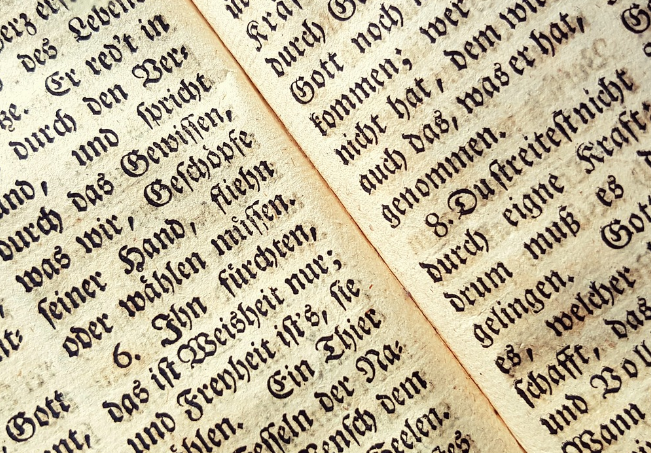 des Lebens
Er red't in
durch den Ver-
und spricht
durch das Gewissen,
was wir, Geschöpfe
seiner Hand, fliehn
oder wählen müssen.
6. Ihn fürchten,
das ist Weisheit nur;
und Freyheit ist's, sie
Ein Thier
der Na-
Gott dem
Seelen.
durch
Gott noch
kommen; wer
nicht hat, dem wird
auch das, was er hat,
genommen.
8. Du streitest nicht
durch eigne Kraft,
drum muß es
gelingen. Gott
es, welcher
schafft, das
und
Wann